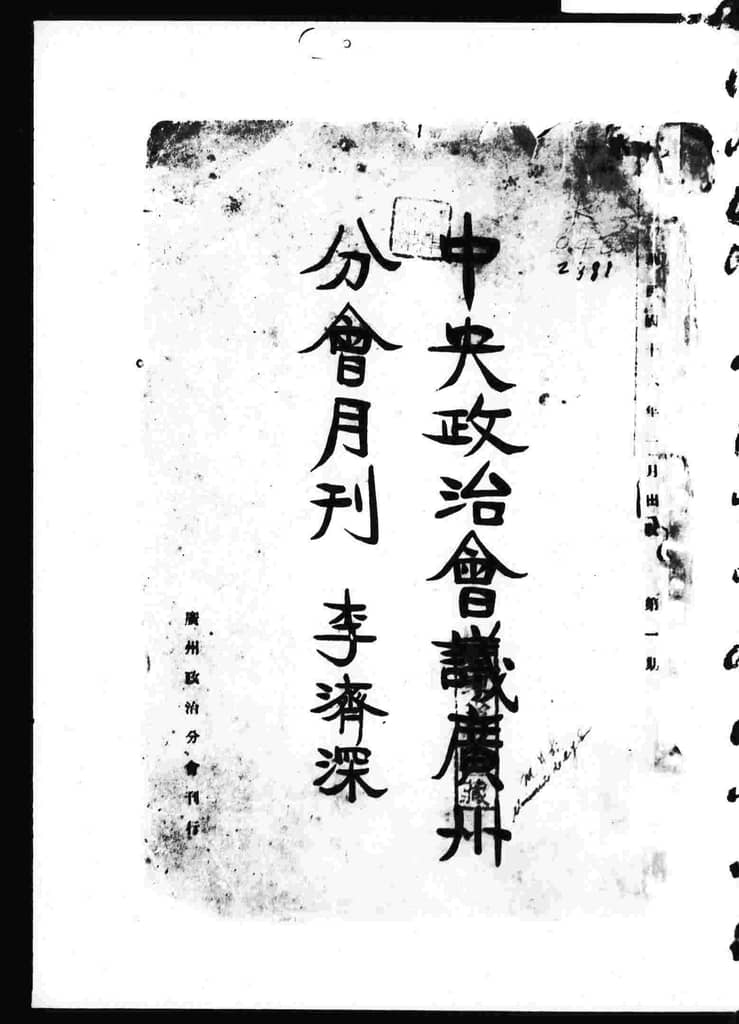 年一月出版 第一期
中央政治會議廣州
分會月刊 李濟深
廣州政治分會刊行
2381
藏